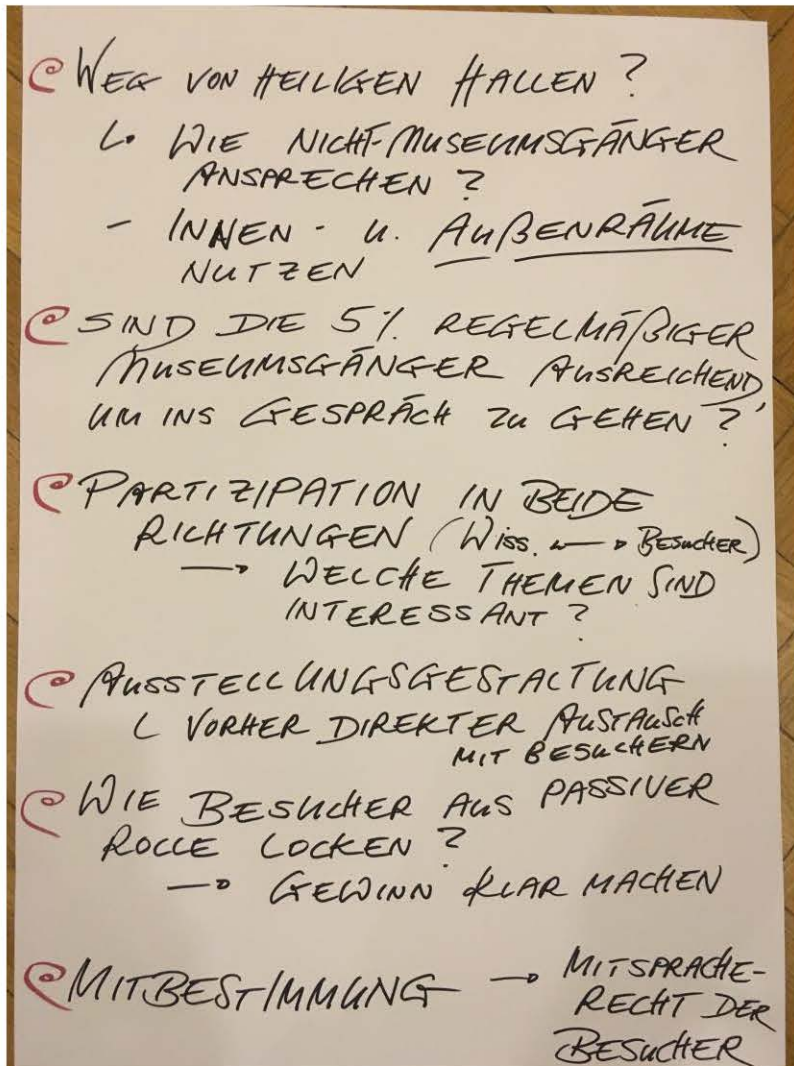 WEG VON HEILIGEN HALLEN?
WIE NICHT-MUSEUMSGÄNGER
ANSPRECHEN?
- INNEN- U. AUßENRÄUME
NUTZEN
SIND DIE 5% REGELMÄßIGER
MUSEUMSGÄNGER AUSREICHEND,
UM INS GESPRÄCH ZU GEHEN?
PARTIZIPATION IN BEIDE
RICHTUNGEN (WISS. ↔ BESUCHER)
→ WELCHE THEMEN SIND
INTERESSANT?
AUSSTELLUNGSGESTALTUNG
VORHER DIREKTER AUSTAUSCH
MIT BESUCHERN
WIE BESUCHER AUS PASSIVER
ROLLE LOCKEN?
→ GEWINN KLAR MACHEN
MITBESTIMMUNG → MITSPRACHE-
RECHT DER
BESUCHER